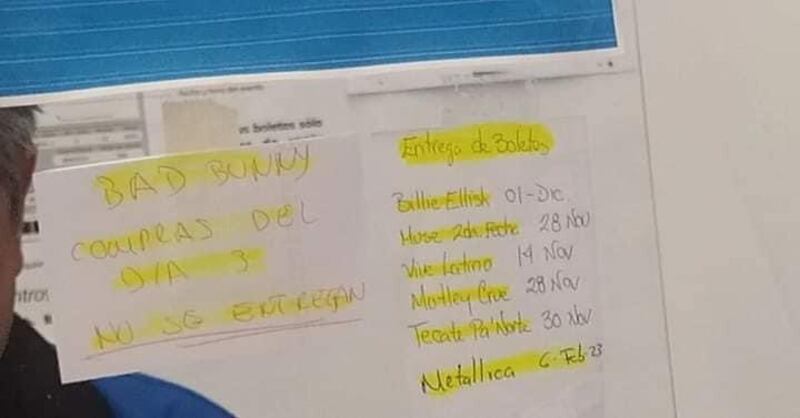 os boletos sólo
BAD BUNNY
COMPRAS DEL
DIA 3
NO SE ENTREGAN
Entrega de Boletos
Billie Ellish 01-Dic.
Muse 2da Fecha 28 Nov
Vive Latino 14 Nov
Motley Crue 28 Nov
Tecate Pa'Norte 30 Nov
Metallica 6-Feb-23